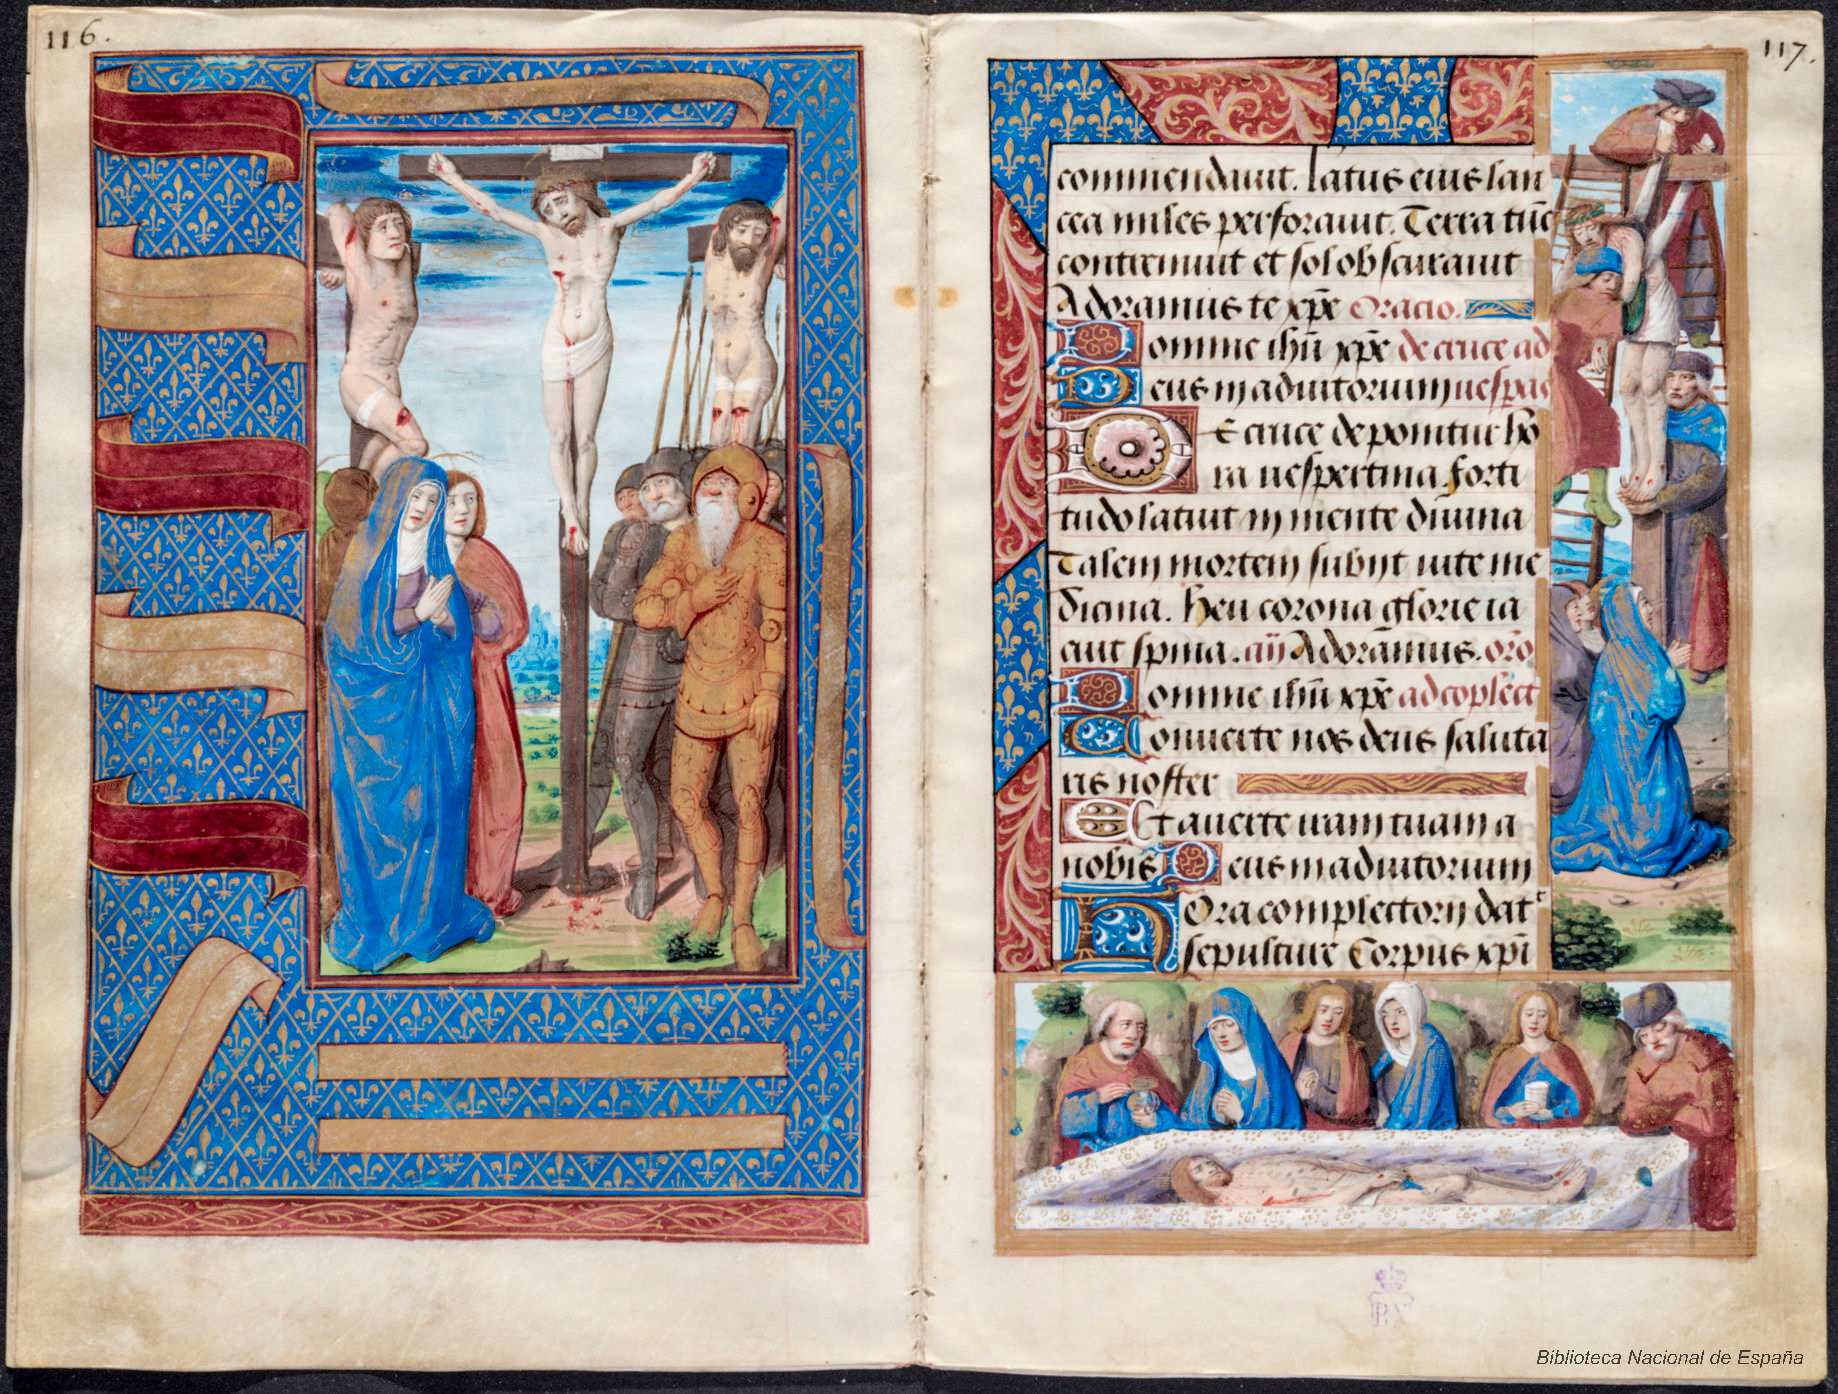 116.
117.
commendauit. Latus eius lan
cea miles perforauit. Terra tūc
contremuit et sol obscurauit
Adoramus te xp̄e Oracio.
Domine ihū xp̄e de cruce ad
Deus in adiutorium uespas
De cruce deponitur ho
ra uespertina forti
tudo latiut in mente diuina
Talem mortem subijt uite me
dicina. Heu corona glorie ia
cuit spina. Adoramus. oro
Domine ihū xp̄e ad cōplect
Conuerte nos deus saluta
ris noster
Et auerte iram tuam a
nobis Deus in adiutorium
Hora complectorij dat
sepulture Corpus xp̄i
BN
Biblioteca Nacional de España